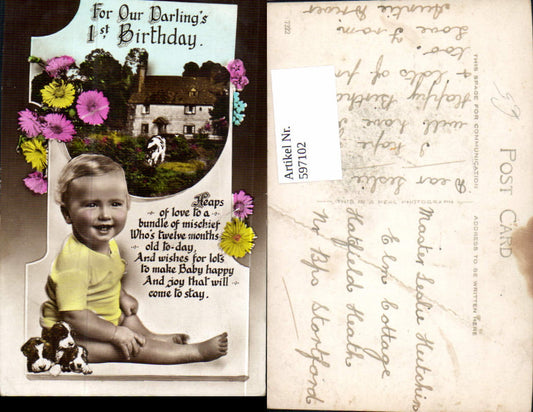 For Our Darling's
1st Birthday.
Heaps
of love to a
bundle of mischief
Who's twelve months
old to-day,
And wishes for lots
to make Baby happy
And joy that will
come to stay.
Artikel Nr.
597102
POST CARD
THIS SPACE FOR COMMUNICATION
ADDRESS TO BE WRITTEN HERE
THIS IS A REAL PHOTOGRAPH
Dear Leslie
I hope
will have
Happy Birth
& lots of
too
Love from
Auntie
Master Leslie Hutchin
Elm Cottage
Hatfield Heath
Nr Bps Stortford